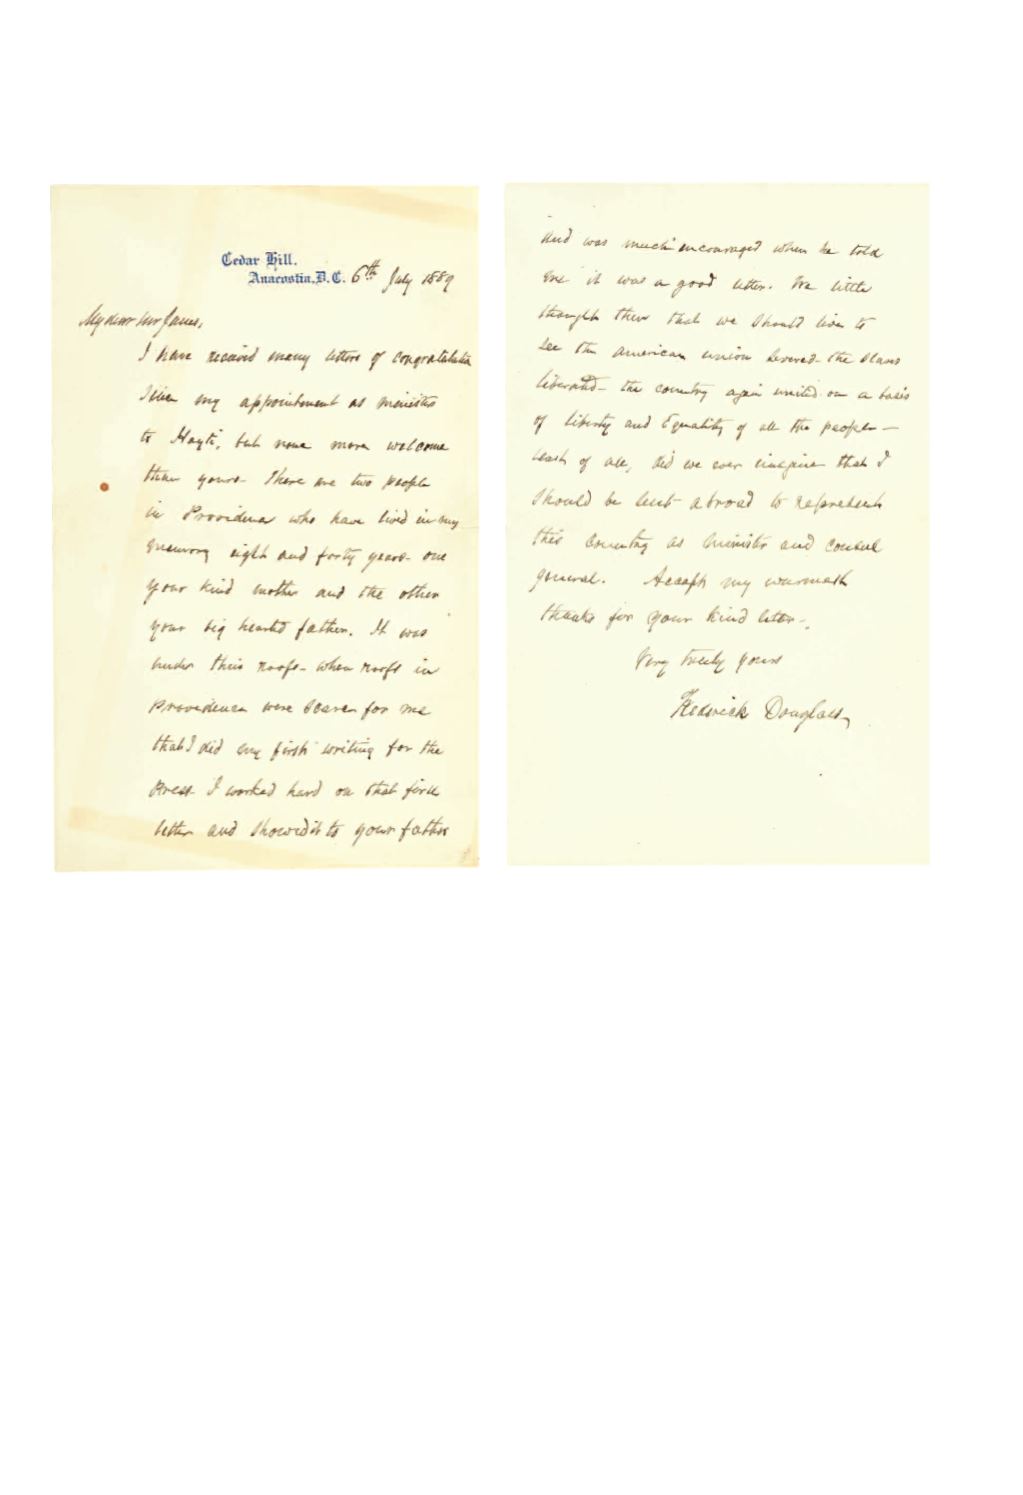 Cedar Hill.
Anacostia, D.C. 6th July 1889
My dear Mr James,
I have received many letters of congratulation
Since my appointment as minister
to Hayti, but none more welcome
than yours. There are two people
in Providence who have lived in my
memory eight and forty years - one
your kind mother and the other
your big hearted father. It was
under their roofs - when roofs in
Providence were scarce for me
that I did my first writing for the
Press. I worked hard on that first
letter and showed it to your father
and was much encouraged when he told
me it was a good letter. We little
thought then that we should live to
see the American union severed - the slaves
liberated - the country again united on a basis
of liberty and Equality of all the people -
least of all, did we ever imagine that I
should be sent abroad to represent
this country as minister and consul
general. Accept my warmest
thanks for your kind letter.
Very truly yours
Frederick Douglass